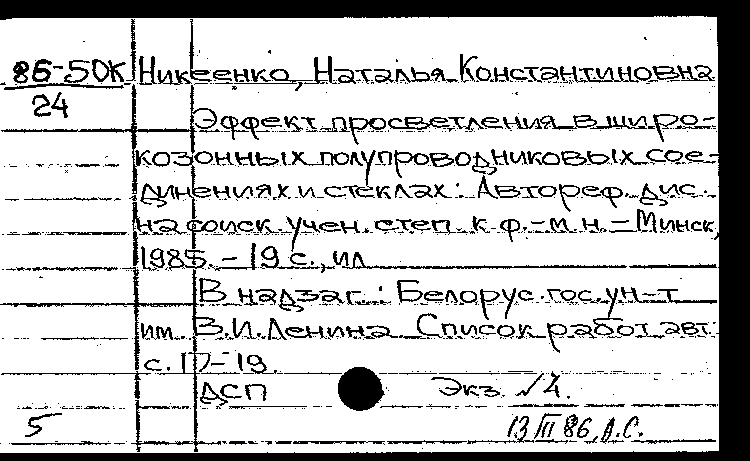 86-50К Никеенко, Наталья Константиновна
24
Эффект просветления в широ-
козонных полупроводниковых сое-
динениях и стеклах: Автореф. дис.
на соиск учен. степ. к. ф.-м. н. - Минск,
1985. - 19 с., ил
В надзаг.: Белорус. гос. ун-т
им. В.И.Ленина. Список работ авт.
с. 17-19.
ДСП Экз. №4.
5 13 III 86, А.С.